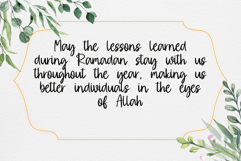 May the lessons learned
during Ramadan stay with us
throughout the year, making us
better individuals in the eyes
of Allah